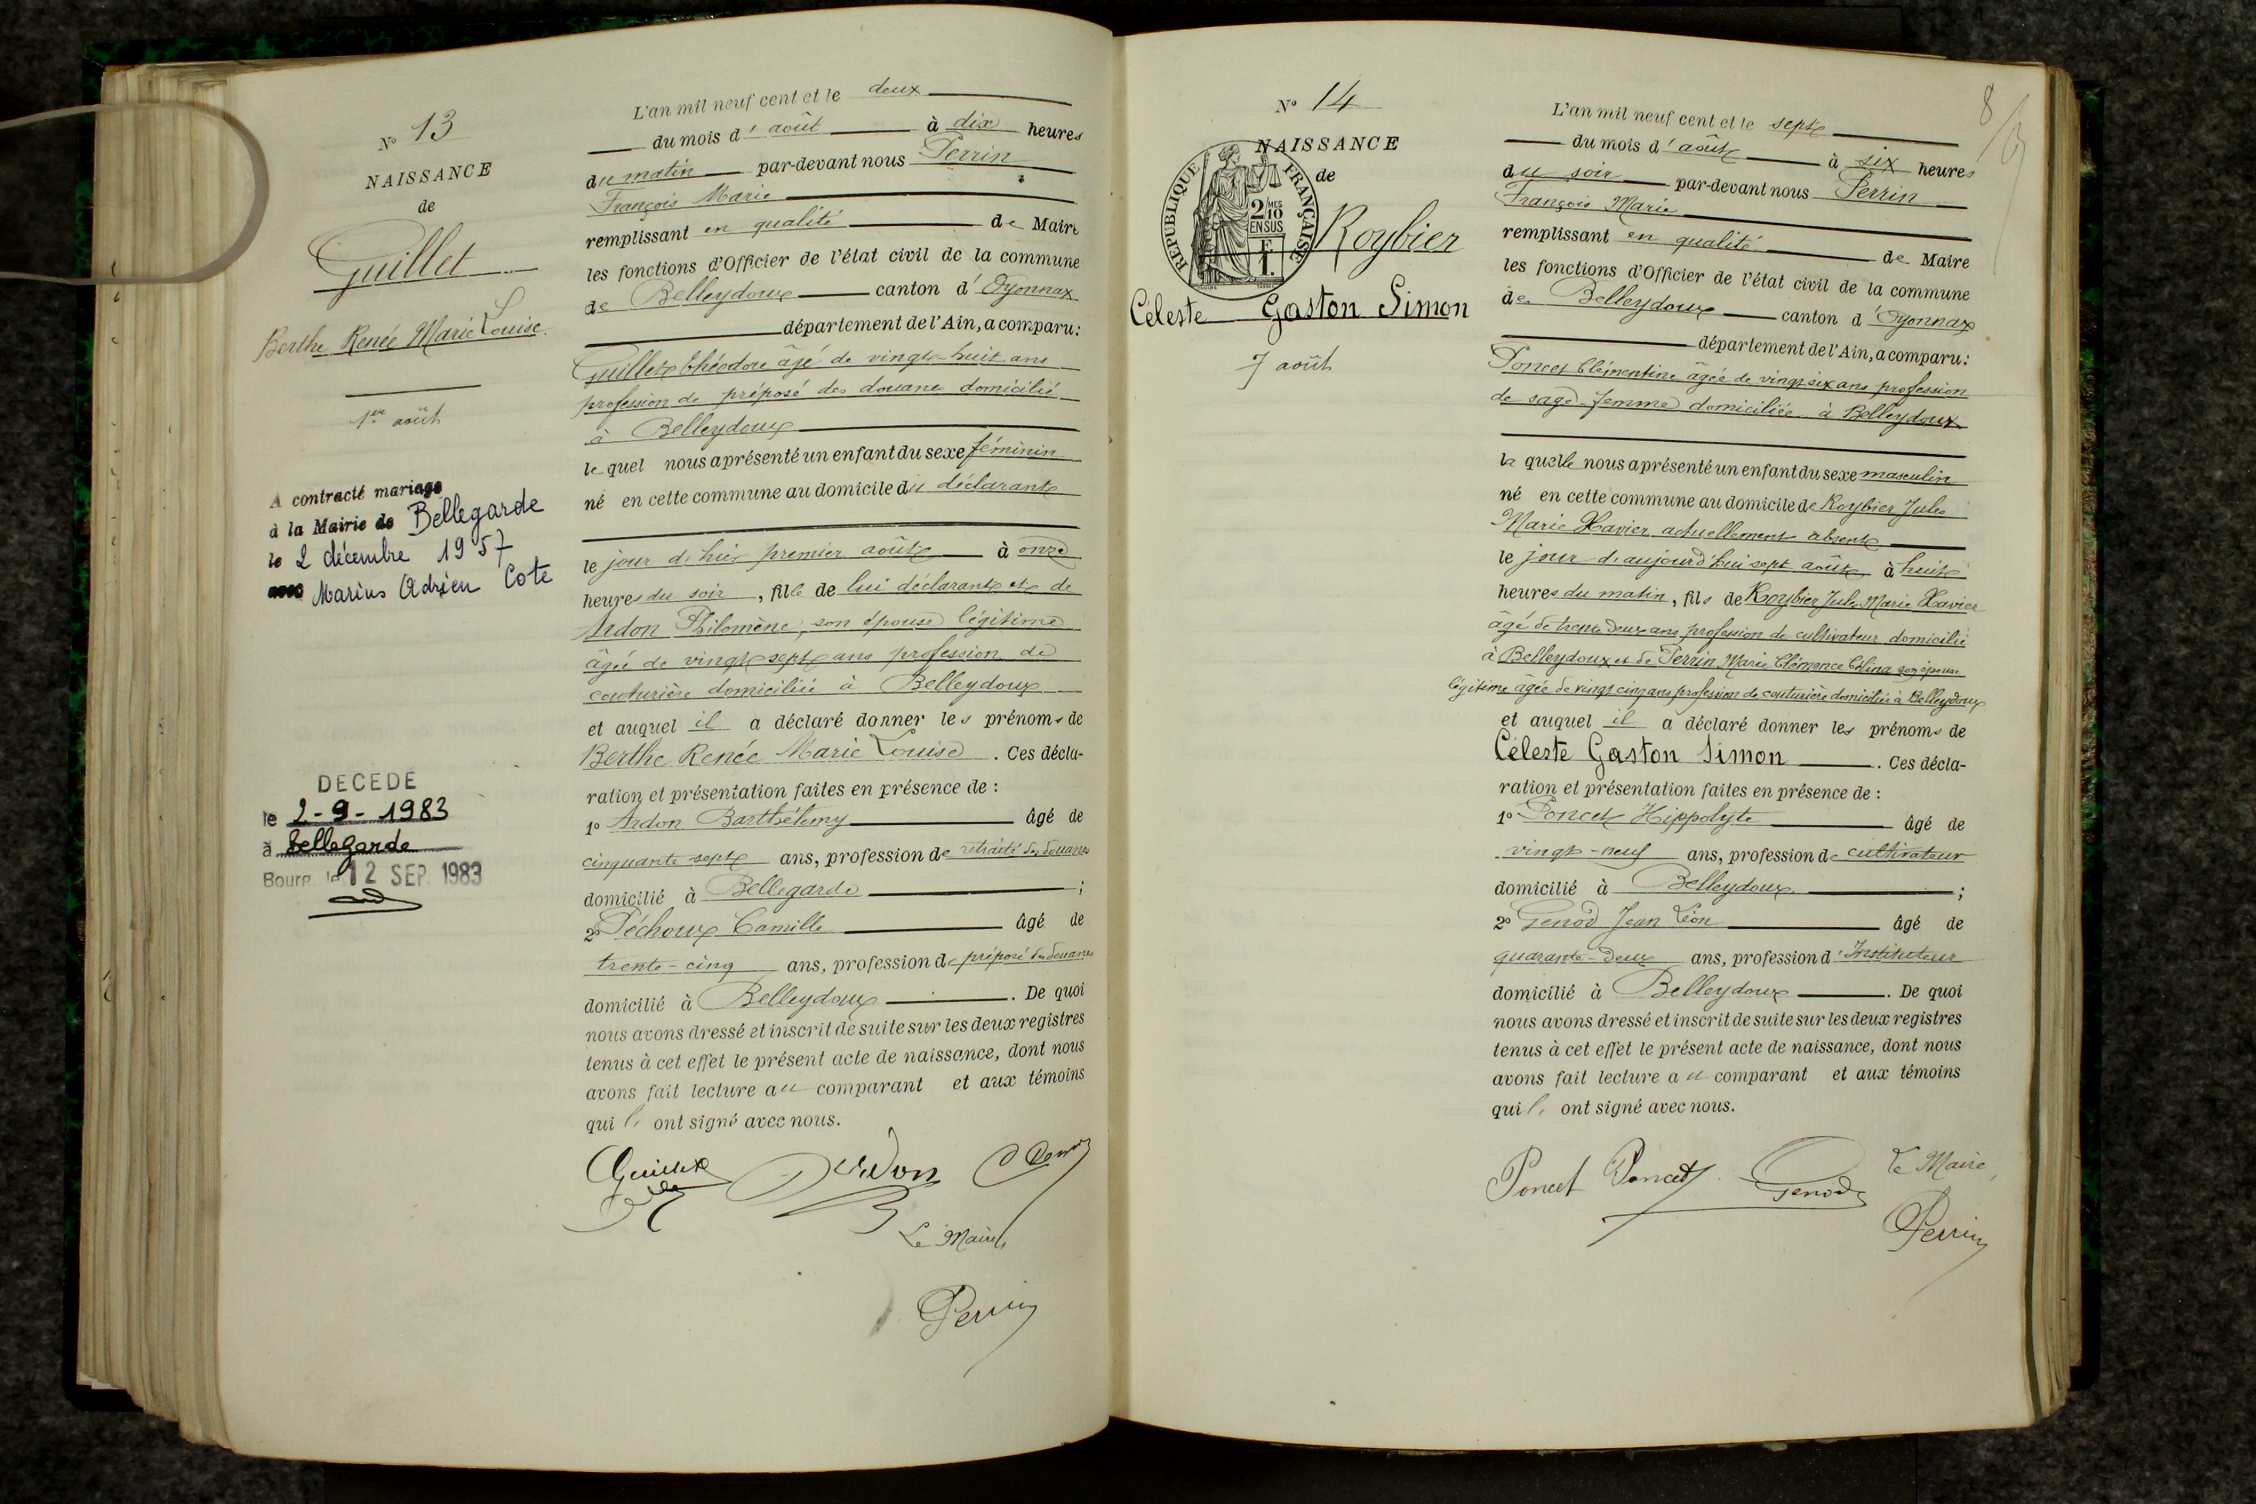 N° 13
NAISSANCE
de
Guillet
Berthe Renée Marie Louise.
1er août
A contracté mariage
à la Mairie de Bellegarde
le 2 décembre 1957
avec Marius Adrien Cote
DECEDE
le 2-9-1983
à Bellegarde
Bourg, le 12 SEP. 1983
L'an mil neuf cent et le deux
du mois d'août à dix heures
du matin par-devant nous Perrin
François Marie
remplissant en qualité de Maire
les fonctions d'Officier de l'état civil de la commune
de Belleydoux canton d'Oyonnax
département de l'Ain, a comparu:
Guillet Théodore âgé de vingt-huit ans
profession de préposé des douanes domicilié
à Belleydoux
le quel nous a présenté un enfant du sexe féminin
né en cette commune au domicile du déclarant
le jour d'hier premier août à onze
heures du soir, fille de lui déclarant et de
Ardon Philomène, son épouse légitime
âgée de vingt-sept ans profession de
couturière domiciliée à Belleydoux
et auquel il a déclaré donner les prénoms de
Berthe Renée Marie Louise. Ces décla-
ration et présentation faites en présence de :
1° Ardon Barthélemy âgé de
cinquante-sept ans, profession de retraité des douanes
domicilié à Bellegarde ;
2° Péchoux Camille âgé de
trente-cinq ans, profession de préposé des douanes
domicilié à Belleydoux. De quoi
nous avons dressé et inscrit de suite sur les deux registres
tenus à cet effet le présent acte de naissance, dont nous
avons fait lecture au comparant et aux témoins
qui l' ont signé avec nous.
Guillet Ardon
Le Maire,
Perrin
8
N° 14
NAISSANCE
de
REPUBLIQUE FRANÇAISE
2/10 MES
EN SUS
Roybier
Céleste Gaston Simon
7 août
L'an mil neuf cent et le sept
du mois d'août à six heures
du soir par-devant nous Perrin
François Marie
remplissant en qualité de Maire
les fonctions d'Officier de l'état civil de la commune
de Belleydoux canton d'Oyonnax
département de l'Ain, a comparu:
Poncet Clémentine âgée de vingt six ans profession
de sage-femme domiciliée à Belleydoux
la quelle nous a présenté un enfant du sexe masculin
né en cette commune au domicile de Roybier Jules
Marie Xavier actuellement absent
le jour d'aujourd'hui sept août à huit
heures du matin, fils de Roybier Jules Marie Xavier
âgé de trente deux ans profession de cultivateur domicilié
à Belleydoux et de Perrin Marie Clémence Célina son épouse
légitime âgée de vingt cinq ans profession de couturière domiciliée à Belleydoux
et auquel il a déclaré donner les prénoms de
Céleste Gaston Simon. Ces décla-
ration et présentation faites en présence de :
1° Poncet Hippolyte âgé de
vingt-neuf ans, profession de cultivateur
domicilié à Belleydoux ;
2° Genod Jean Léon âgé de
quarante-deux ans, profession d'Instituteur
domicilié à Belleydoux. De quoi
nous avons dressé et inscrit de suite sur les deux registres
tenus à cet effet le présent acte de naissance, dont nous
avons fait lecture au comparant et aux témoins
qui l' ont signé avec nous.
Poncet Poncet Genod Le Maire,
Perrin